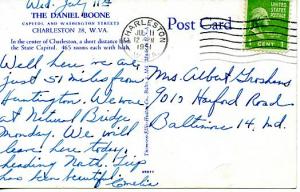 Wed. July 11th
THE DANIEL BOONE
CAPITOL AND WASHINGTON STREETS
CHARLESTON 28, W. VA.
In the center of Charleston, a short distance from
the State Capitol. 465 rooms each with bath.
Well, here we are
just 51 miles from
Huntington. We were
at Natural Bridge
Monday. We will
leave here today,
heading North. Trip
has been beautiful.
Amelia
Post Card
CHARLESTON
JUL 11
12
1951
1 CENT 1
Mrs. Albert Groshans
9012 Hayford Road
Baltimore 14, Md.